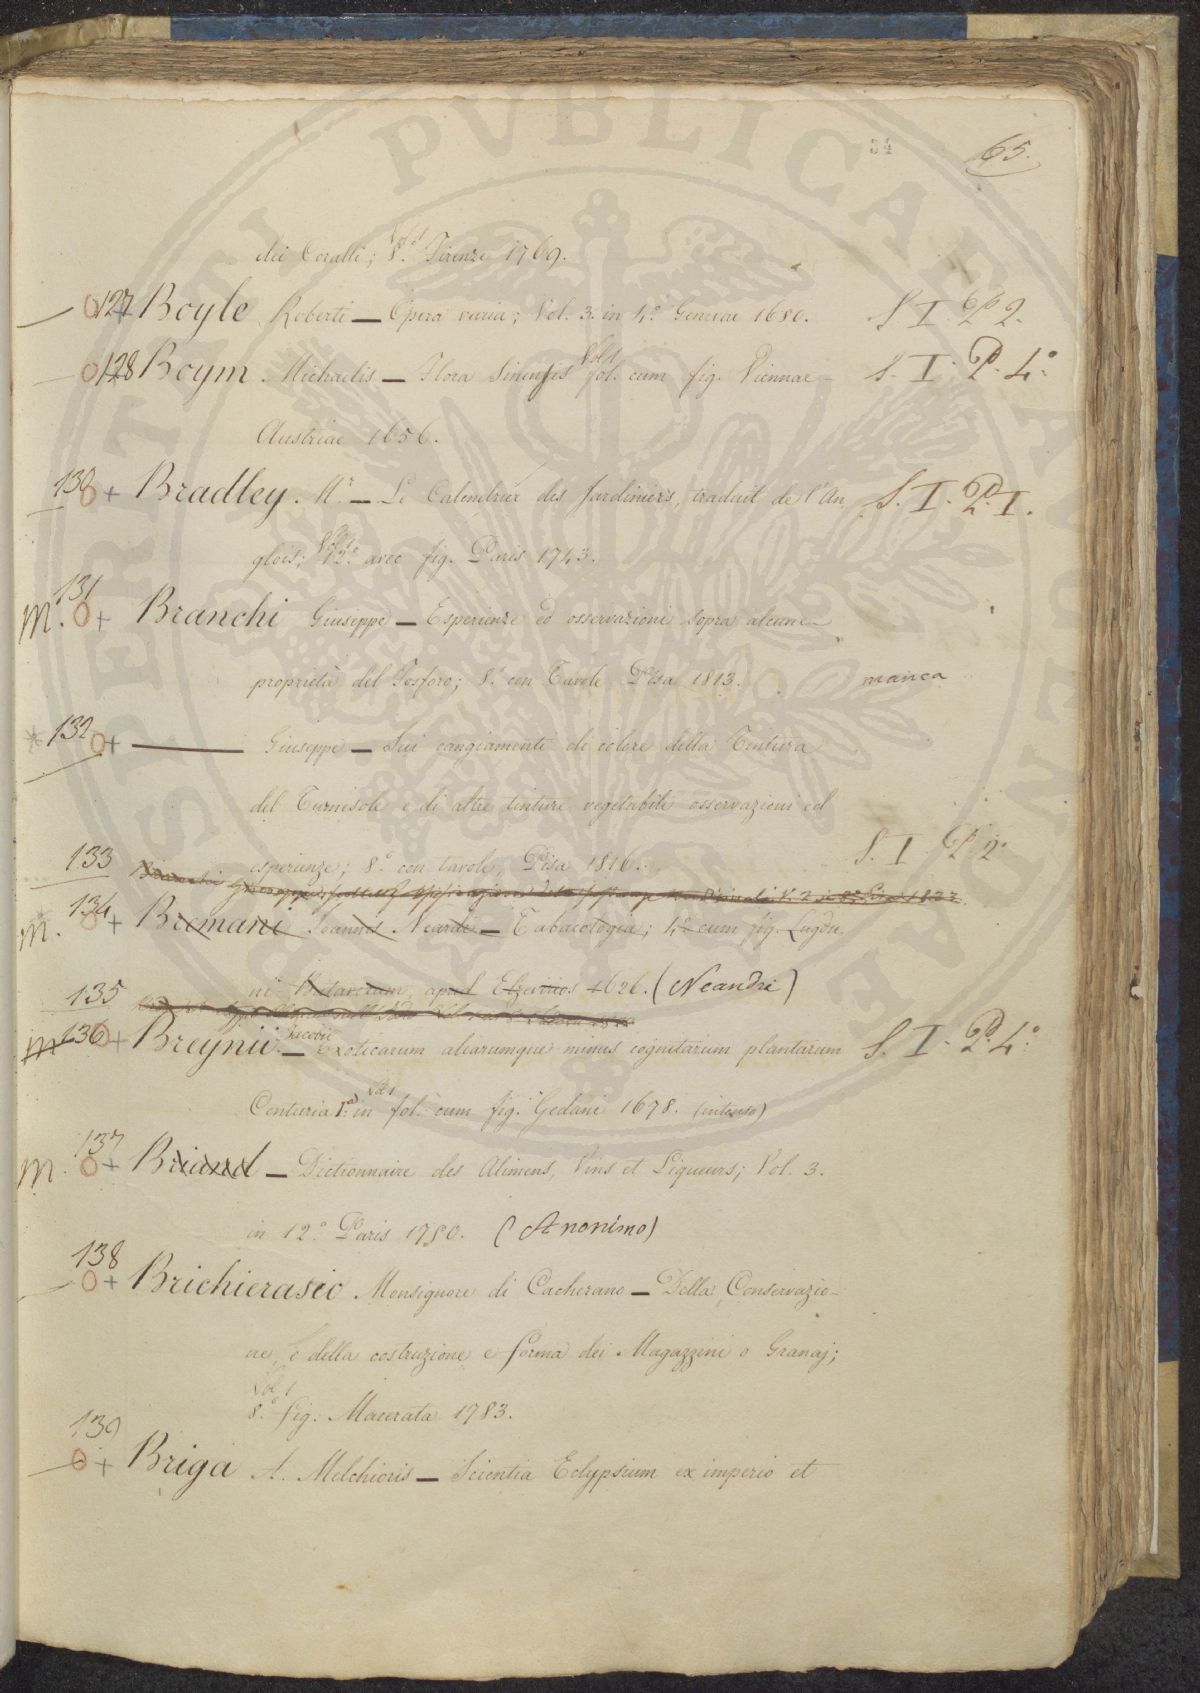 34
65.
dei Coralli; Vol 1 8.° Firenze 1769.
127 Boyle Roberti — Opera varia; Vol. 3. in 4.° Genevae 1680. S I. P 2.
128 Boym Michaelis — Flora Sinensis Vol 1 fol. cum fig. Viennae S. I. P. 4.°
Austriae 1656.
130 + Bradley. M.r — Le Calendrier des Jardiniers, traduit de l'An S. I. P. I.
glois; Vol 1 12.° avec fig. Paris 1743.
131
M. O + Branchi Giuseppe — Esperienze ed osservazioni sopra alcune
proprietà del Fosforo; 8.° con Tavole Pisa 1813. manca
132 O + — Giuseppe — Sui cangiamenti di colore della Tintura
del Turnisole e di altre tinture vegetabili osservazioni ed
esperienze; 8.° con tavole, Pisa 1816. S. I. P 2.°
133
134
M. O + Bremani Joannis Neardi — Tabacologia; 4.° cum fig. Lugdu
ni Batavorum, apud Elzevirios 1626. (Neandri)
135
136 O + Breynii Jacobi — Exoticarum aliarumque minus cognitarum plantarum S. I. P. 4.°
Centuria I.a in Vol 1 fol. cum fig. Gedani 1678. (intonso)
137
M. O + Briand — Dictionnaire des Alimens, Vins et Liqueurs; Vol. 3.
in 12.° Paris 1750. (Anonimo)
138
O + Brichierasio Monsignore di Cacherano — Della Conservazio-
ne, e della costruzione e forma dei Magazzini o Granaj;
Vol 1
8.° fig. Macerata 1783.
139
O + Briga A. Melchioris — Scientia Eclypsium ex imperio et